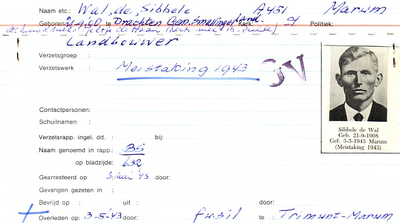 Naam etc.: Wal, de, Sibbele A 451 Marum
Geboren: 21/9/'08 te Drachten Gem. Smallingerland. Kerk: Politiek:
Landbouwer
Verzetsgroep :
Verzetswerk : Meistaking 1943
GV
Contactpersonen:
Schuilnaam :
Verzetsrapp. ingel. dd. : bij:
Naam genoemd in rapp.: BS
op bladzijde: 632
Gearresteerd op : 3 Mei '43 door:
Gevangen gezeten in:
Bevrijd op : uit : door:
+ Overleden op : 3-5-'43 door: fusil te : Trimunt-Marum
Sibbele de Wal
Geb. 21-9-1908
Gef. 3-5-1943 Marum
(Meistaking 1943)